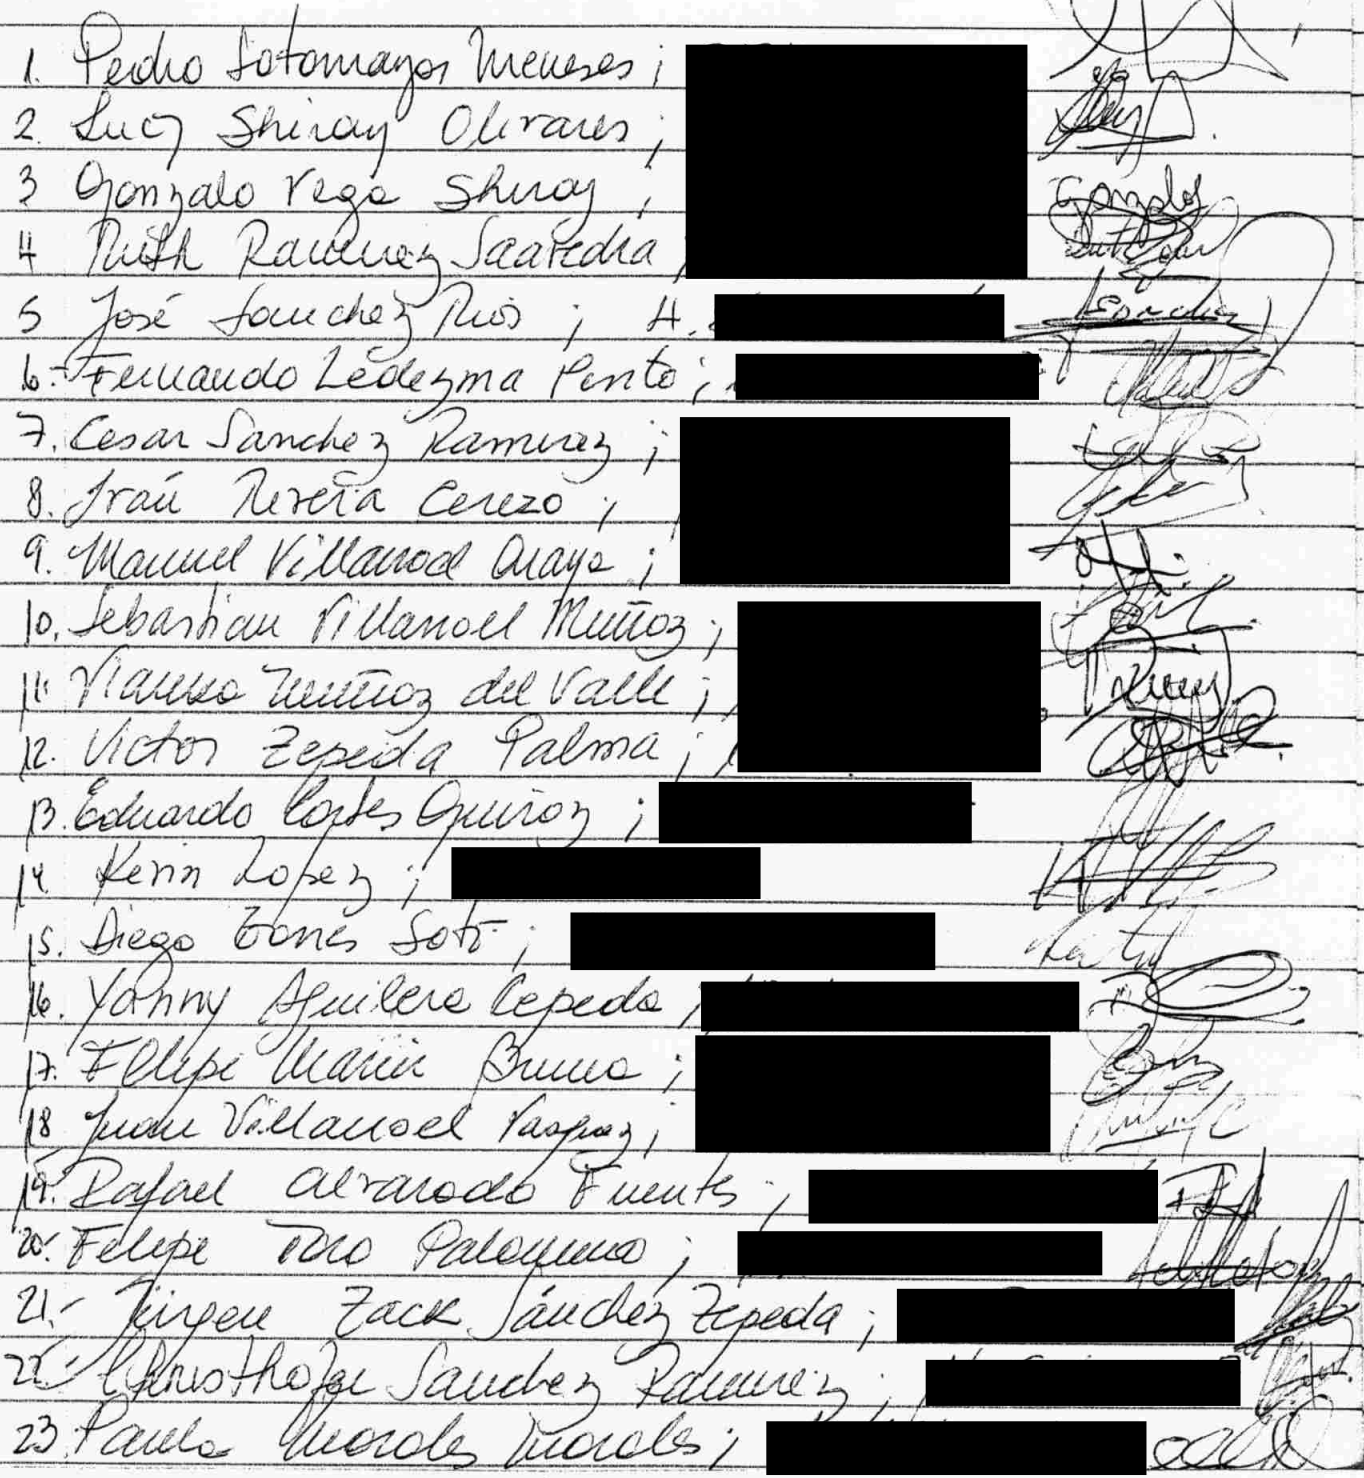 1. Pedro Sotomayor Meneses;
2. Lucy Shiray Olivares;
3 Gonzalo Vega Shiray;
4 Ruth Ramirez Saavedra
5 José Sanchez Rios; H.
6.- Fernando Ledezma Pinto;
7. Cesar Sanchez Ramirez;
8. Cerezo;
9. Manuel Villarroel Araya;
10. Sebastian Villarroel Muñoz;
11. Muñoz del Valle;
12. Victor Zepeda Palma;
13. Eduardo Cortes Quiroz;
14 Kevin Lopez;
15. Diego Torres Soto;
16. Yohnny Aguilera Cepeda;
17. Fellipe Marin Bruna;
18 Juan Villarroel Vasquez;
19. Rafael Alvarado Fuentes;
20. Felipe Toro Palomino;
21.- Jürgen Zack Sánchez Zepeda;
22.- Sanchez Ramirez;
23. Paula Morales Morales;